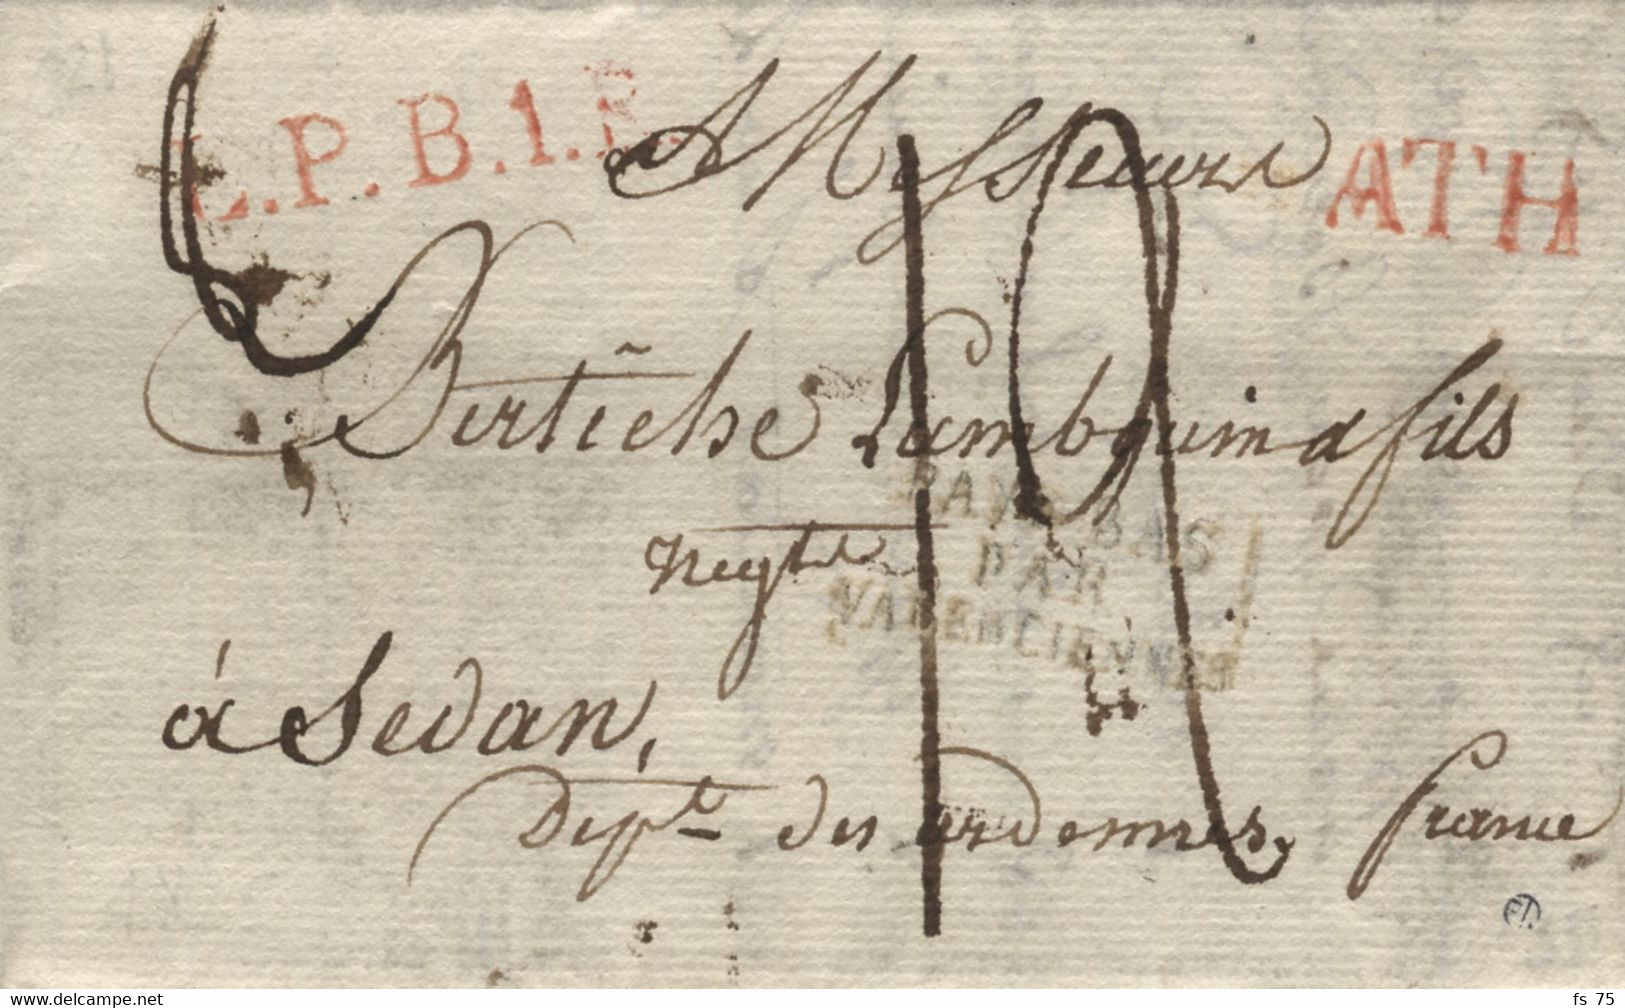 L.P.B.1.R.
A Messieurs
ATH
Bertèche Lambquin & fils
Negts
PAYS-BAS
PAR
VALENCIENNES
à Sedan,
Dept des ardennes, france
19
www.delcampe.net
fs 75